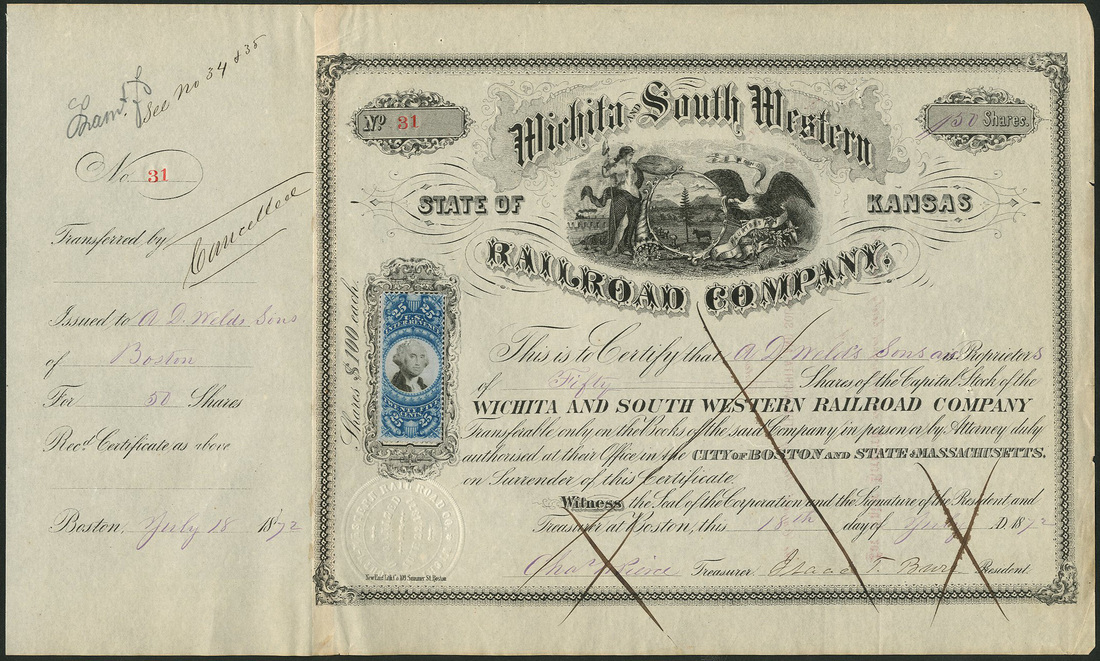 See No 34 & 35
No. 31
Cancelled
Transferred by
Issued to A D. Welds Sons
of Boston
For 50 Shares
Recd. Certificate as above
Boston, July 18 1872
No 31
50 Shares.
Wichita AND South Western
STATE OF KANSAS
RAILROAD COMPANY.
Shares $100 each.
25
25
25
25
This is to Certify that A D. Weld's Sons are Proprietors
of Fifty Shares of the Capital Stock of the
WICHITA AND SOUTH WESTERN RAILROAD COMPANY
Transferable only on the Books of the said Company in person or by Attorney duly
authorised at their Office in the CITY OF BOSTON AND STATE OF MASSACHUSETTS,
on Surrender of this Certificate.
Witness the Seal of the Corporation and the Signature of the President and
Treasurer at Boston, this 18th day of July A.D. 1872
Treasurer. President.
New Eng. Lith. Co. 109 Summer St. Boston